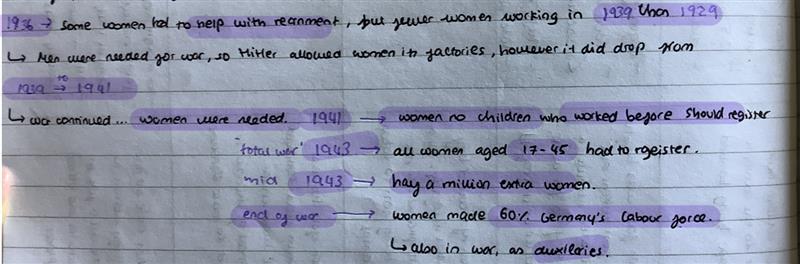 1936 → Some women had to help with rearment, but fewer women working in 1939 than 1929
↳ Men were needed for war, so Hitler allowed women in factories, however it did drop from
1939 to → 1941
↳ war continued... women were needed. 1941 → women no children who worked before should register
"total war" 1943 → all women aged 17-45 had to rgeister.
mid 1943 → hay a million extra women.
end of war → women made 60% Germany's labour force.
↳ also in war, as auxileries.